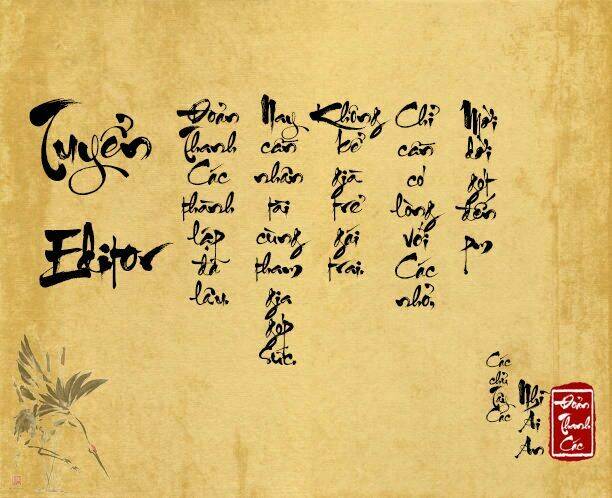 Tuyển
Editor
Đoản Thanh Các thành lập đã lâu.
Nay cần nhân tài cùng tham gia góp sức.
Không kể già trẻ gái trai.
Chỉ cần có lòng với Các nhỏ,
Mời dời gót đến pm
Các chủ Tây Các
Nhĩ Ái An
Đoản Thanh Các